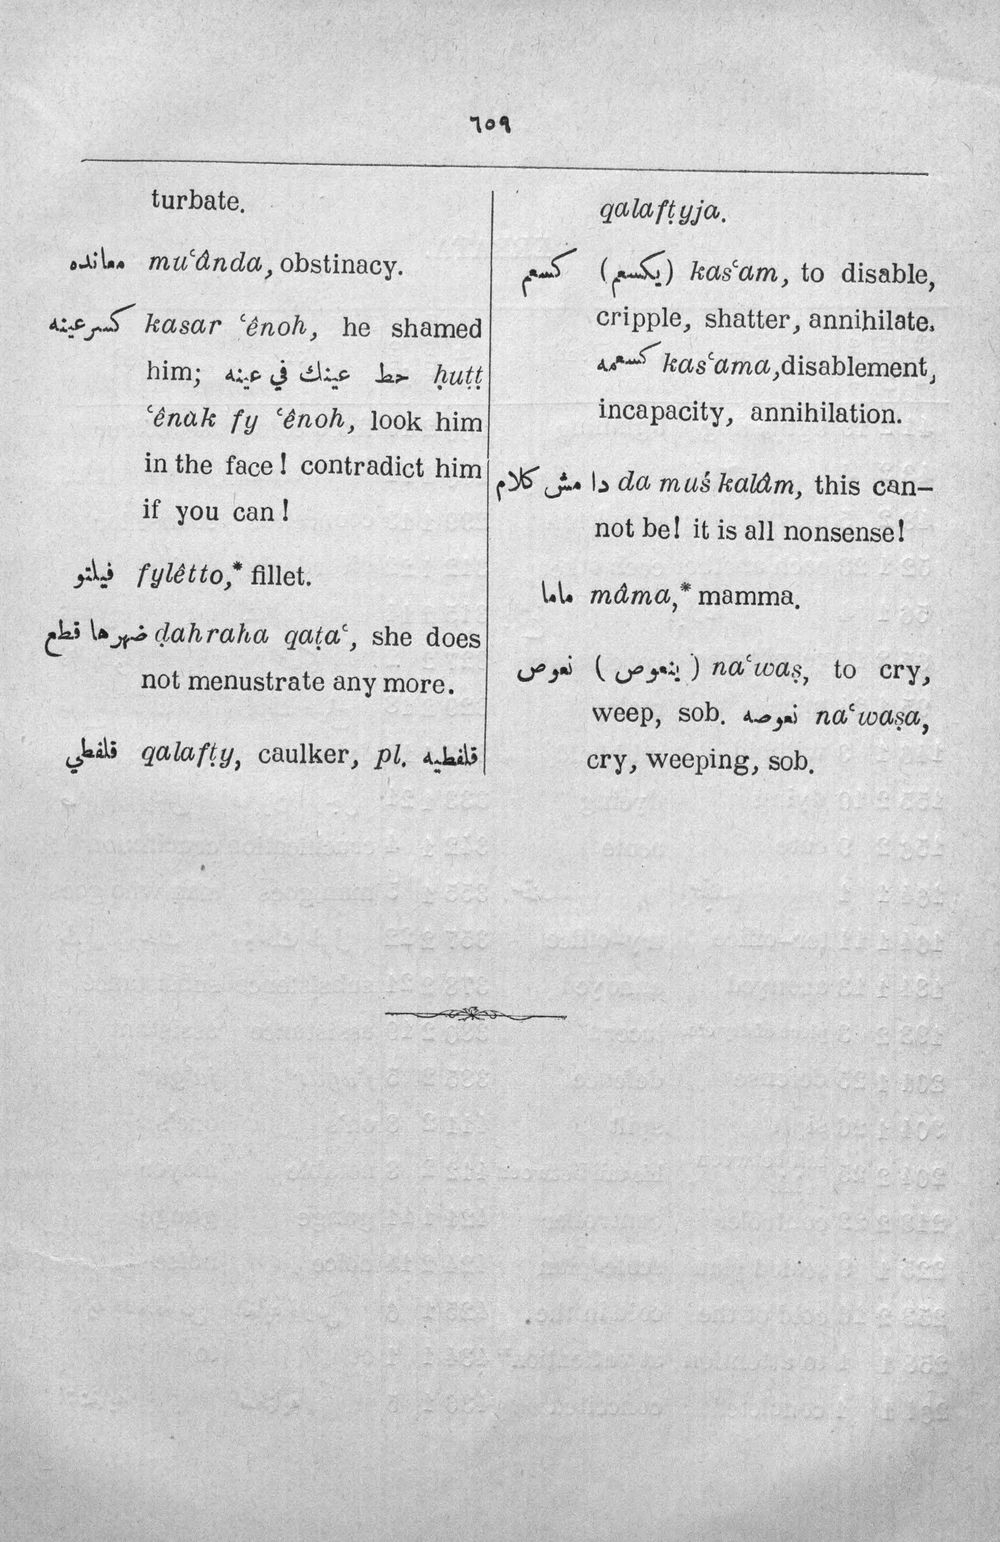 ٦٥٩
turbate.
معانده muʿânda, obstinacy.
كسرعينه kasar ʿênoh, he shamed
him; حط عينك في عينه ḥuṭṭ
ʿênak fy ʿênoh, look him
in the face! contradict him
if you can!
فيلتو fylêtto,* fillet.
ضهرها قطع ḍahraha qaṭaʿ, she does
not menustrate any more.
قلفطي qalafṭy, caulker, pl. قلفطيه
qalafṭyja.
كسعم (يكسعم) kasʿam, to disable,
cripple, shatter, annihilate.
كسعمه kasʿama, disablement,
incapacity, annihilation.
دا مش كلام da muś kalâm, this can–
not be! it is all nonsense!
ماما mâma,* mamma.
نعوص (ينعوص) naʿwaṣ, to cry,
weep, sob. نعوصه naʿwaṣa,
cry, weeping, sob.